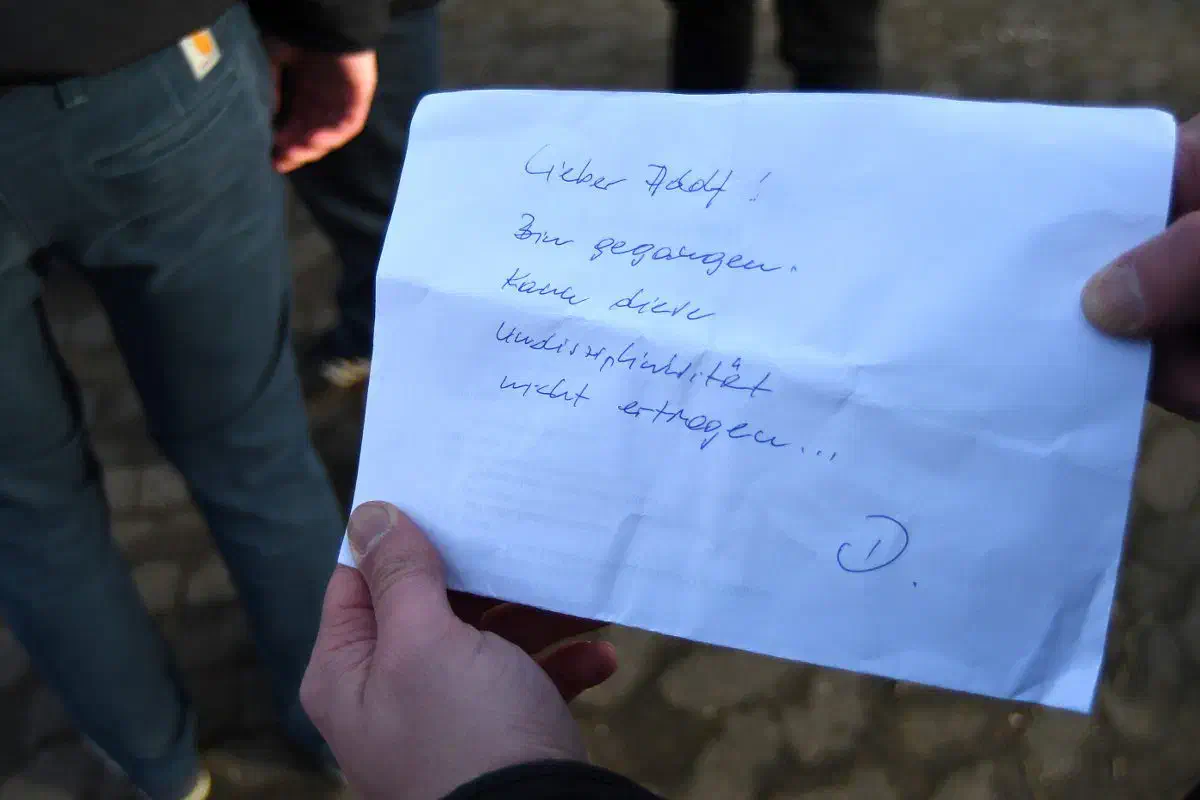 Lieber Adolf!
Bin gegangen.
Kann diese
Undisziplinität
nicht ertragen...
D.